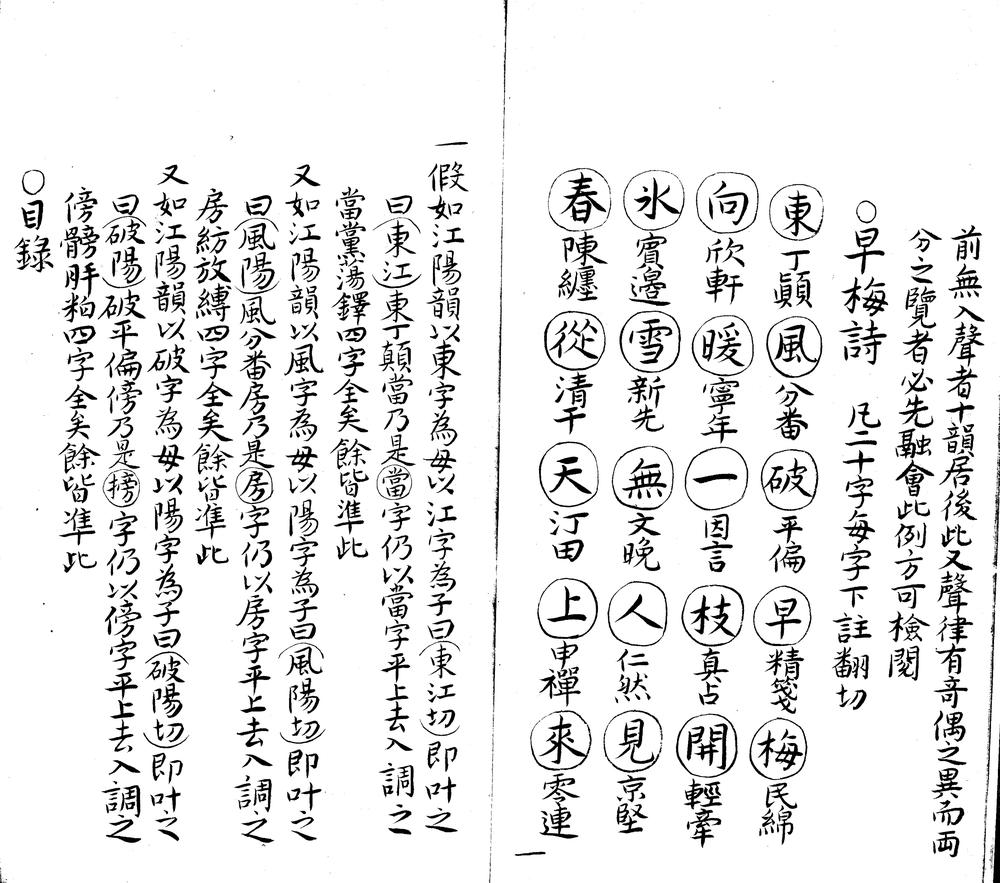 前無入聲者十韻居後此又聲律有奇偶之異而兩
分之覽者必先融會此例方可檢閱
○早梅詩 凡二十字每字下註翻切
東丁顚風分番破平偏早精箋梅民綿
向欣軒暖寧年一因言枝真占開輕牽
氷賓邊雪新先無文晚人仁然見京堅
春陳纏從清千天汀田上申禪來零連
一
一假如江陽韻以東字為母以江字為子曰東江切即叶之
曰東江東丁顛當乃是當字仍以當字平上去入調之
當黨湯鐸四字全矣餘皆準此
又如江陽韻以風字為母以陽字為子曰風陽切即叶之
曰風陽風分番房乃是房字仍以房字平上去入調之
房紡放縛四字全矣餘皆準此
又如江陽韻以破字為母以陽字為子曰破陽切即叶之
曰破陽破平偏傍乃是搒字仍以傍字平上去入調之
傍髈胖粕四字全矣餘皆準此
○目錄